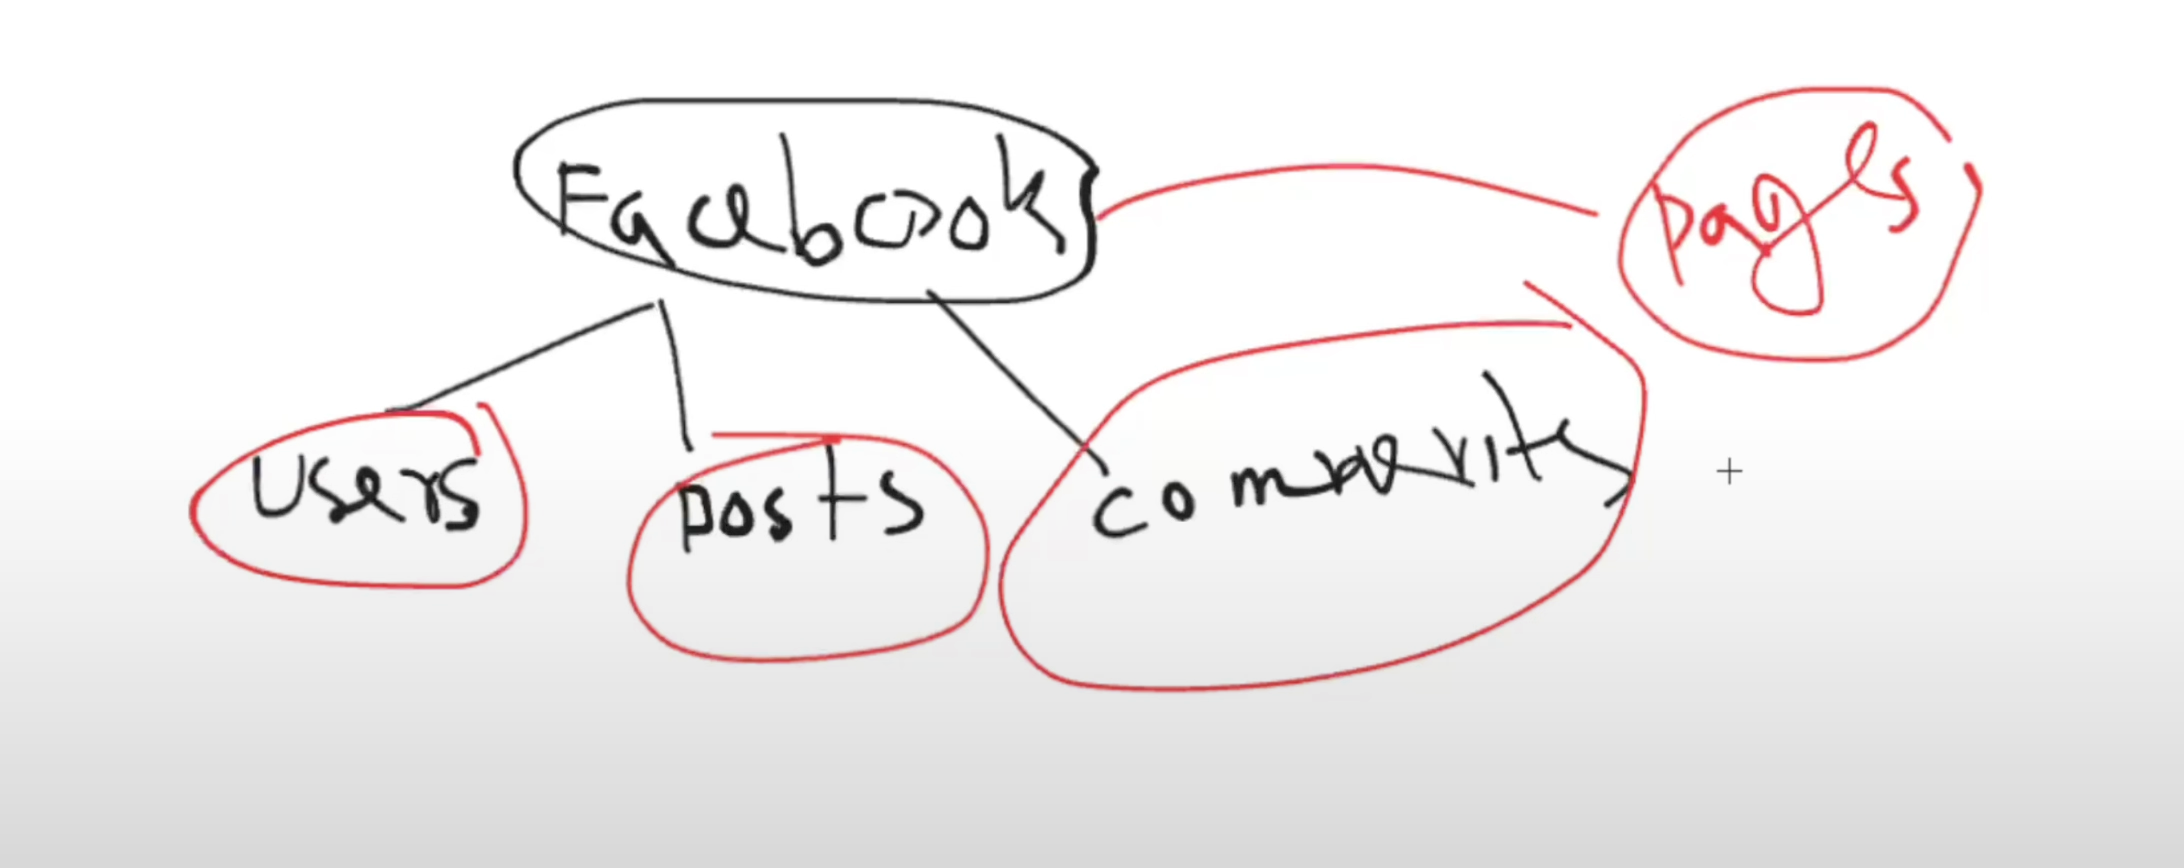 Facebook
pages
Users
posts
community